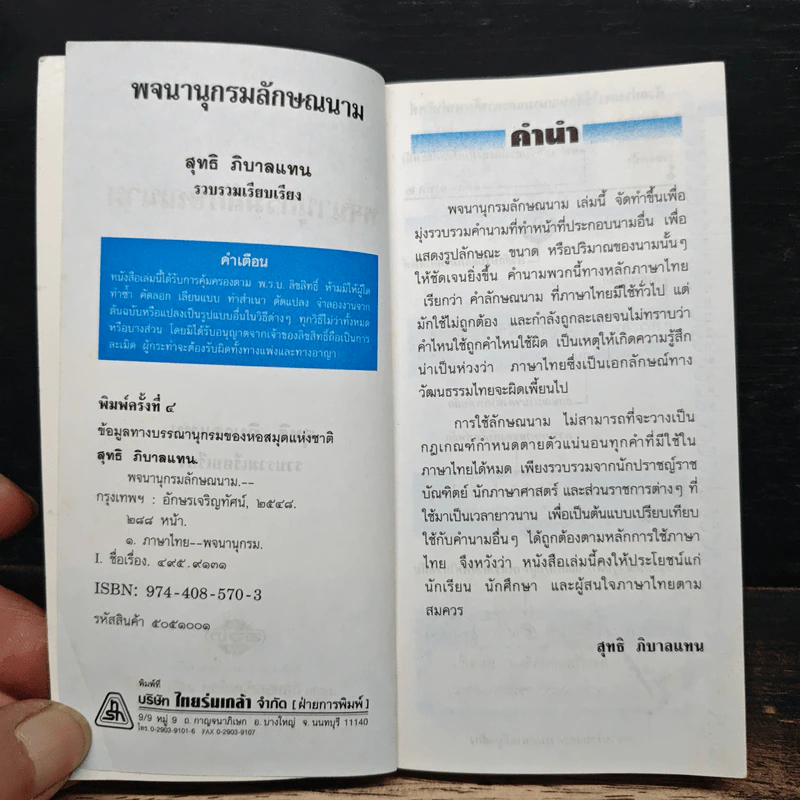 พจนานุกรมลักษณนาม
สุทธิ ภิบาลแทน
รวบรวมเรียบเรียง
คำเตือน
หนังสือเล่มนี้ได้รับการคุ้มครองตาม พ.ร.บ. ลิขสิทธิ์ ห้ามมิให้ผู้ใด
ทำซ้ำ คัดลอก เลียนแบบ ทำสำเนา ดัดแปลง จำลองงานจาก
ต้นฉบับหรือแปลงเป็นรูปแบบอื่นในวิธีต่างๆ ทุกวิธีไม่ว่าทั้งหมด
หรือบางส่วน โดยมิได้รับอนุญาตจากเจ้าของลิขสิทธิ์ถือเป็นการ
ละเมิด ผู้กระทำจะต้องรับผิดทั้งทางแพ่งและทางอาญา
พิมพ์ครั้งที่ ๔
ข้อมูลทางบรรณานุกรมของหอสมุดแห่งชาติ
สุทธิ ภิบาลแทน.
พจนานุกรมลักษณนาม.--
กรุงเทพฯ : อักษรเจริญทัศน์, ๒๕๔๘.
๒๘๘ หน้า.
๑. ภาษาไทย--พจนานุกรม.
I. ชื่อเรื่อง. ๔๙๕.๙๑๓๑
ISBN: 974-408-570-3
รหัสสินค้า ๕๐๕๑๐๐๑
พิมพ์ที่
บริษัท ไทยร่มเกล้า จำกัด [ฝ่ายการพิมพ์]
9/9 หมู่ 9 ถ.กาญจนาภิเษก อ.บางใหญ่ จ.นนทบุรี 11140
โทร.0-2903-9101-6 FAX 0-2903-9107
คำนำ
พจนานุกรมลักษณนาม เล่มนี้ จัดทำขึ้นเพื่อ
มุ่งรวบรวมคำนามที่ทำหน้าที่ประกอบนามอื่น เพื่อ
แสดงรูปลักษณะ ขนาด หรือปริมาณของนามนั้นๆ
ให้ชัดเจนยิ่งขึ้น คำนามพวกนี้ทางหลักภาษาไทย
เรียกว่า คำลักษณนาม ที่ภาษาไทยมีใช้ทั่วไป แต่
มักใช้ไม่ถูกต้อง และกำลังถูกละเลยจนไม่ทราบว่า
คำไหนใช้ถูกคำไหนใช้ผิด เป็นเหตุให้เกิดความรู้สึก
น่าเป็นห่วงว่า ภาษาไทยซึ่งเป็นเอกลักษณ์ทาง
วัฒนธรรมไทยจะผิดเพี้ยนไป
การใช้ลักษณนาม ไม่สามารถที่จะวางเป็น
กฎเกณฑ์กำหนดตายตัวแน่นอนทุกคำที่มีใช้ใน
ภาษาไทยได้หมด เพียงรวบรวมจากนักปราชญ์ราช
บัณฑิตย์ นักภาษาศาสตร์ และส่วนราชการต่างๆ ที่
ใช้มาเป็นเวลายาวนาน เพื่อเป็นต้นแบบเปรียบเทียบ
ใช้กับคำนามอื่นๆ ได้ถูกต้องตามหลักการใช้ภาษา
ไทย จึงหวังว่า หนังสือเล่มนี้คงให้ประโยชน์แก่
นักเรียน นักศึกษา และผู้สนใจภาษาไทยตาม
สมควร
สุทธิ ภิบาลแทน